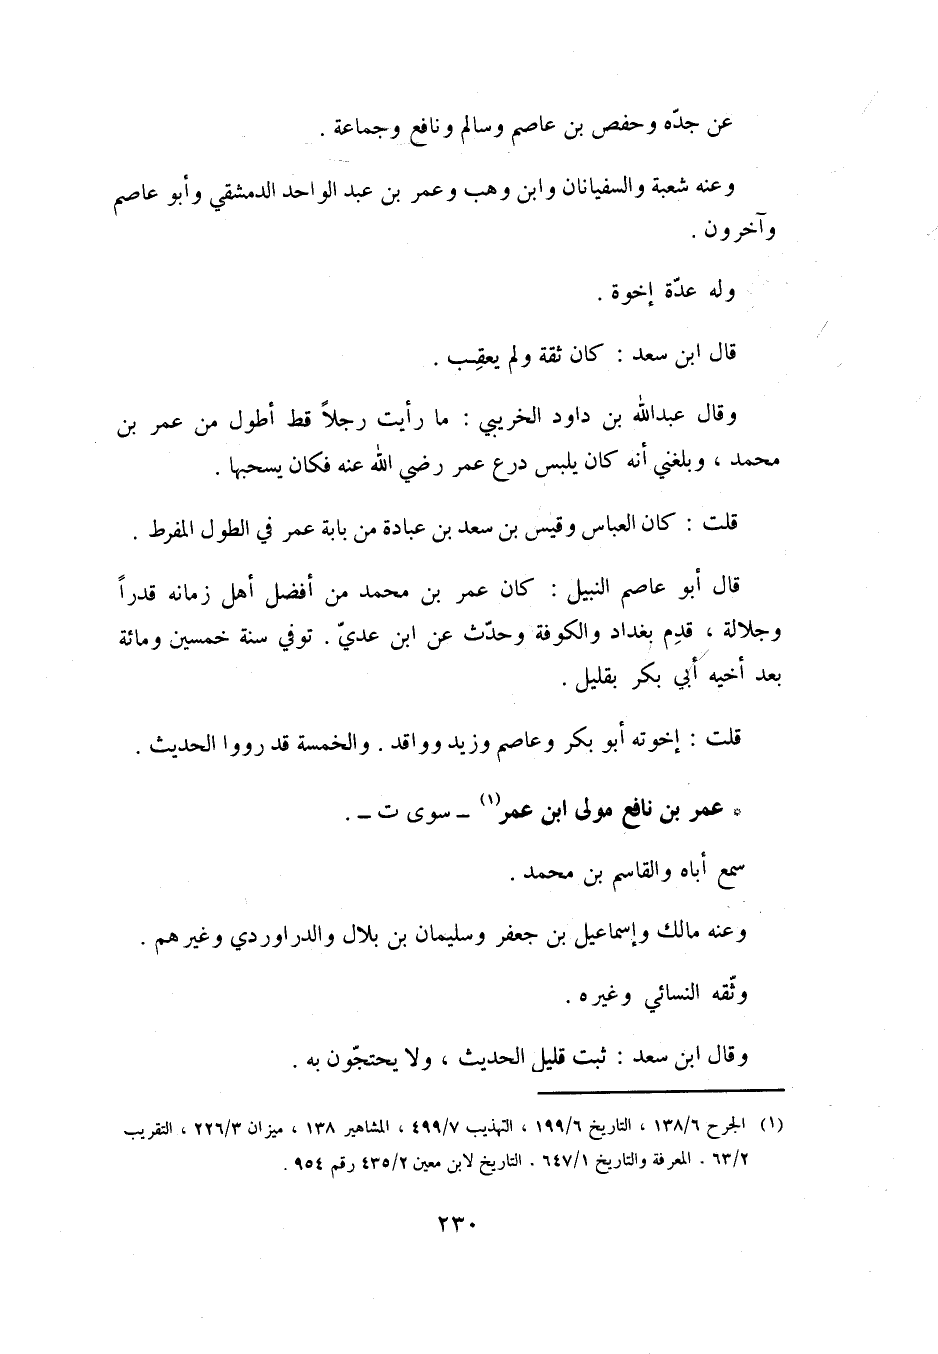 عن جدّه وحفص بن عاصم وسالم ونافع وجماعة .
وعنه شعبة والسفيانان وابن وهب وعمر بن عبد الواحد الدمشقي وأبو عاصم
وآخرون .
وله عدّة إخوة .
قال ابن سعد : كان ثقة ولم يعقِب .
وقال عبدالله بن داود الخريبي : ما رأيت رجلاً قط أطول من عمر بن
محمد ، وبلغني أنه كان يلبس درع عمر رضي الله عنه فكان يسحبها .
قلت : كان العباس وقيس بن سعد بن عبادة من بابة عمر في الطول المفرط .
قال أبو عاصم النبيل : كان عمر بن محمد من أفضل أهل زمانه قدراً
وجلالة ، قدِم بغداد والكوفة وحدّث عن ابن عديّ . توفي سنة خمسين ومائة
بعد أخيه أبي بكر بقليل .
قلت : إخوته أبو بكر وعاصم وزيد وواقد . والخمسة قد رووا الحديث .
* عمر بن نافع مولى ابن عمر(١) ـ سوى ت ـ .
سمع أباه والقاسم بن محمد .
وعنه مالك وإسماعيل بن جعفر وسليمان بن بلال والدراوردي وغيرهم .
وثّقه النسائي وغيره .
وقال ابن سعد : ثبت قليل الحديث ، ولا يحتجّون به .
(١) الجرح ١٣٨/٦ ، التاريخ ١٩٩/٦ ، التهذيب ٤٩٩/٧ ، المشاهير ١٣٨ ، ميزان ٢٢٦/٣ ، التقريب
٦٣/٢ . المعرفة والتاريخ ٦٤٧/١ . التاريخ لابن معين ٤٣٥/٢ رقم ٩٥٤ .
٢٣٠